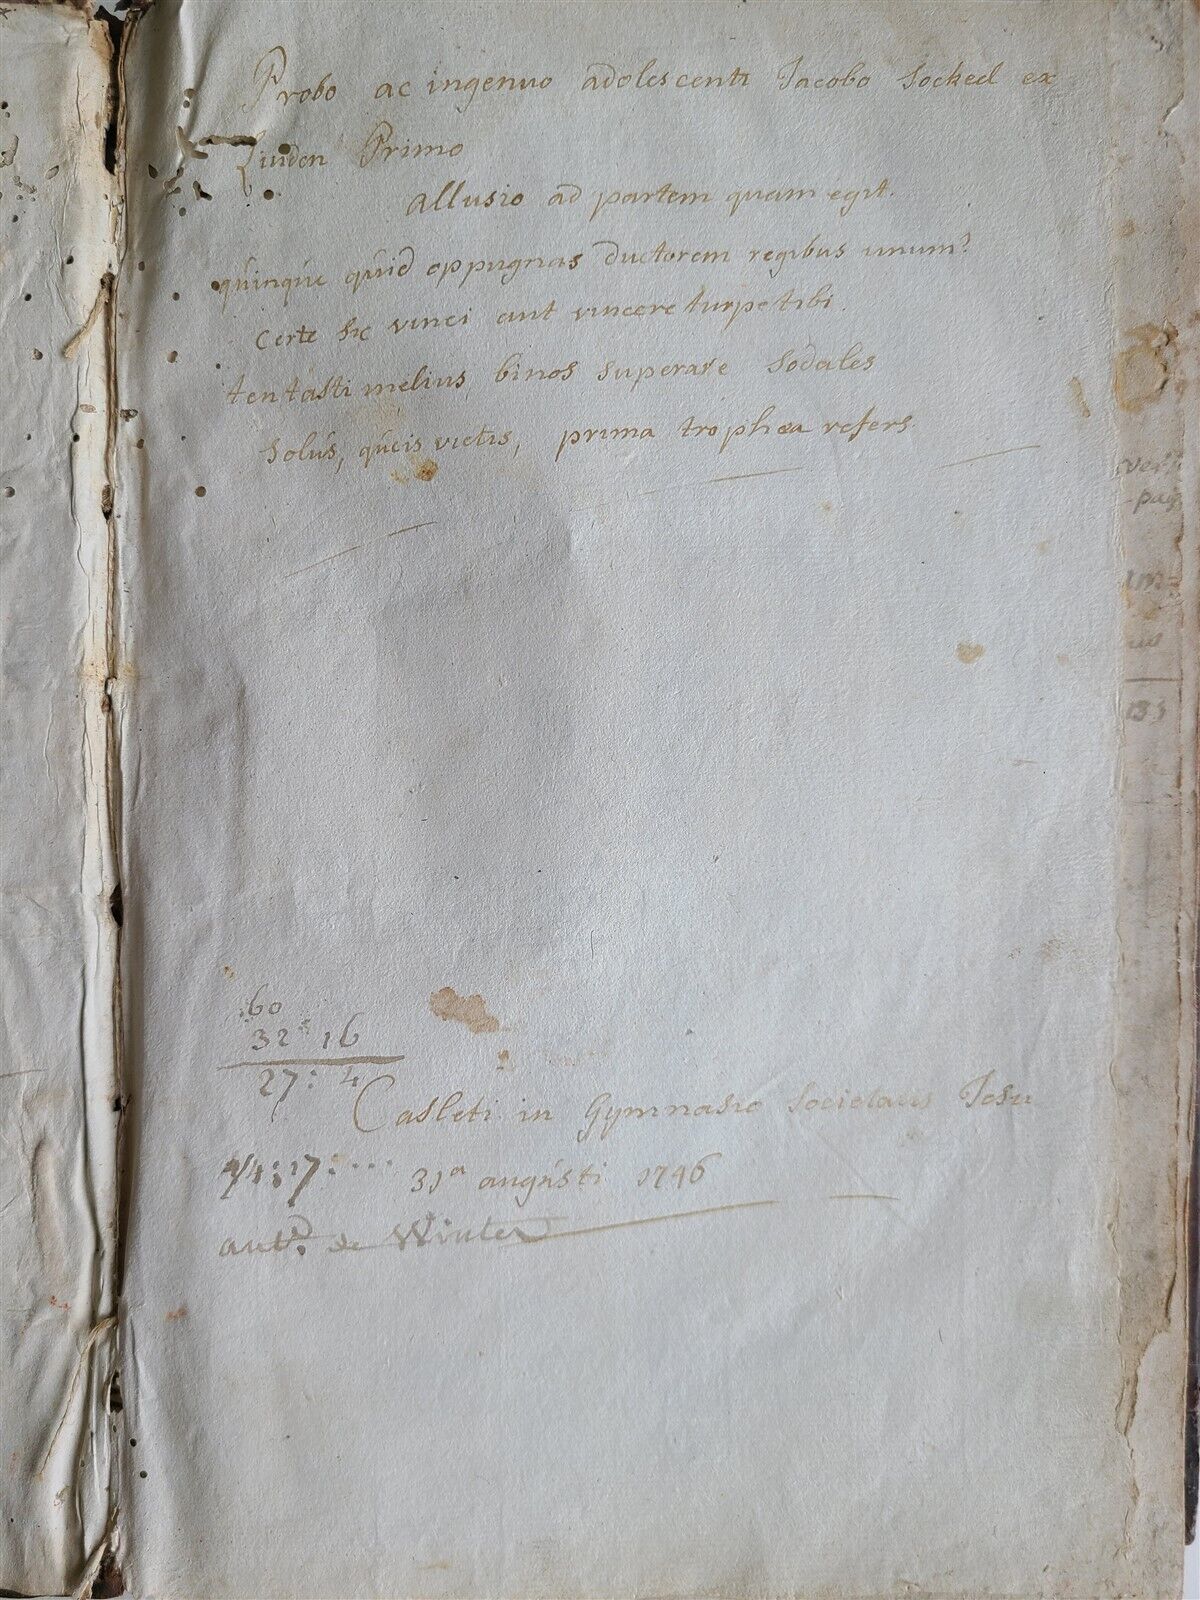 Probo ac ingenuo adolescenti Jacobo Socked ex
Primo
allusio ad partem quam egit.
quinque quid oppugnas ductorem regibus unum?
Certe sic vinci aut vincere turpe tibi.
tentasti melius binos superare sodales
Solus, queis victis, prima trophaea refers
60
32 : 16
27 : 4
Casleti in Gymnasio Societatis Jesu
31a augusti 1746
de Winter
133